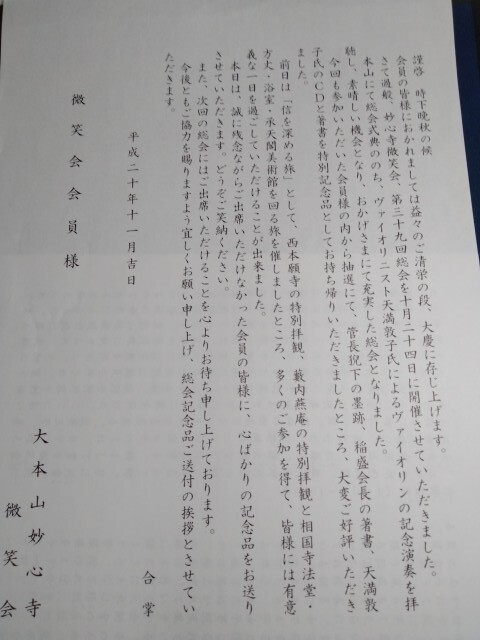 謹啓　時下晩秋の候
会員の皆様におかれましては益々のご清栄の段、大慶に存じ上げます。
さて過般、妙心寺微笑会、第三十九回総会を十月二十四日に開催させていただきました。
本山にて総会式典ののち、ヴァイオリニスト天満敦子氏によるヴァイオリンの記念演奏を拝
聴し、素晴しい機会となり、おかげさまにて充実した総会となりました。
今回も参加いただいた会員様の内から抽選にて、管長猊下の墨跡、稲盛会長の著書、天満敦
子氏のCDと著書を特別記念品としてお持ち帰りいただきましたところ、大変ご好評いただき
ました。
前日は「信を深める旅」として、西本願寺の特別拝観、藪内燕庵の特別拝観と相国寺法堂・
方丈・浴室・承天閣美術館を回る旅を催しましたところ、多くのご参加を得て、皆様には有意
義な一日を過ごしていただけることが出来ました。
本日は、誠に残念ながらご出席いただけなかった会員の皆様に、心ばかりの記念品をお送り
させていただきます。どうぞご笑納ください。
また、次回の総会にはご出席いただけることを心よりお待ち申し上げております。
今後ともご協力を賜りますよう宜しくお願い申し上げ、総会記念品ご送付の挨拶とさせてい
ただきます。
合掌
平成二十年十一月吉日
微笑会会員様
大本山妙心寺
微笑会